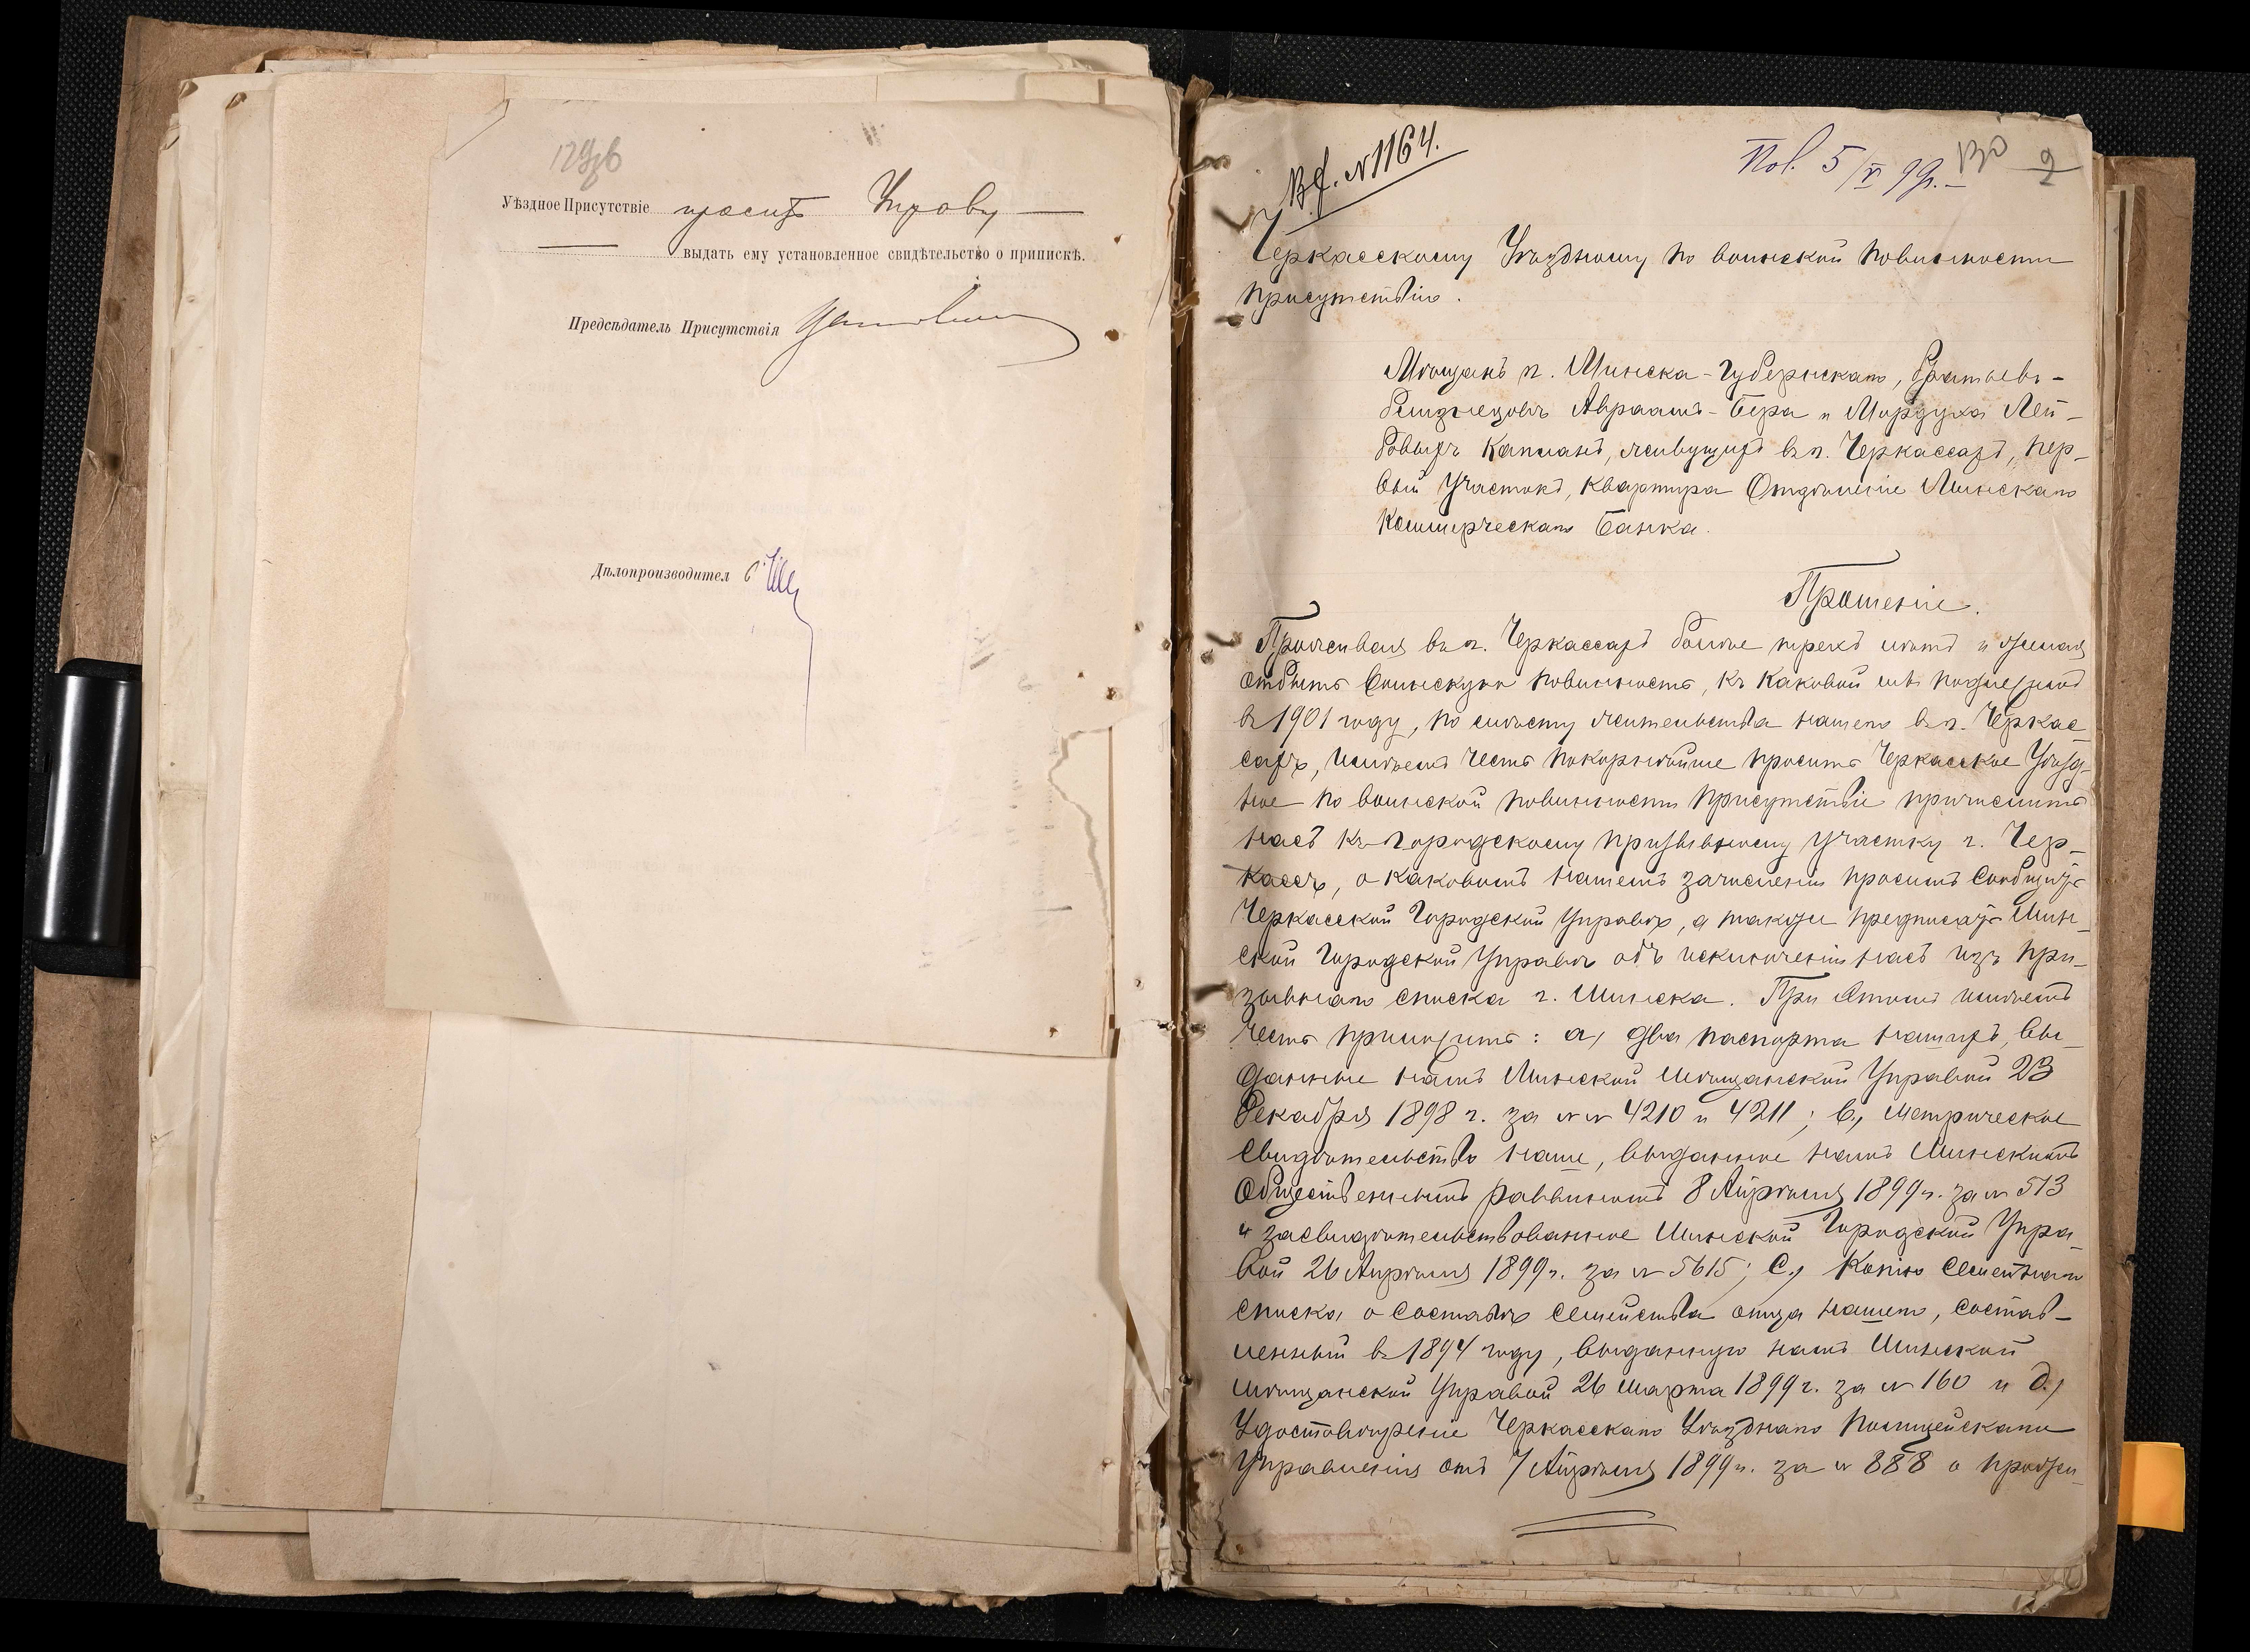 129об
Уѣздное Присутствіе проситъ Управу —
— выдать ему установленное свидѣтельство о припискѣ.
Предсѣдатель Присутствія
Дѣлопроизводител
Вх. № 1164.
Пол. 5/V 99 г. 130 2
Черкасскому Уѣздному по воинской повинности
присутствію.
Мѣщанъ г. Минска-Губернскаго, братьевъ-
близнецовъ Авраамъ-Бера и Мордуха Лей-
бовыхъ Капланъ, живущихъ въ г. Черкассахъ, пер-
вый участокъ, квартира Отдѣленіе Минскаго
Коммерческаго Банка.
Прошеніе.
Проживая въ г. Черкассахъ болѣе трехъ лѣтъ и желая
отбыть воинскую повинность, къ каковой мы подлежимъ
въ 1901 году, по мѣсту жительства нашего въ г. Черкас-
сахъ, имѣемъ честь покорнѣйше просить Черкасское Уѣзд-
ное по воинской повинности присутствіе причислить
насъ къ городскому призывному участку г. Чер-
кассъ, о каковомъ нашемъ зачисленіи просимъ сообщить
Черкасской Городской Управѣ, а также предписать Мин-
ской Городской Управѣ объ исключеніи насъ изъ при-
зывнаго списка г. Минска. При этомъ имѣемъ
честь приложить: а) два паспорта нашихъ, вы-
данные намъ Минской Мѣщанской Управой 23
Декабря 1898 г. за №№ 4210 и 4211; в.) метрическое
свидѣтельство наше, выданное намъ Минскимъ
Общественнымъ раввиномъ 8 Апрѣля 1899 г. за № 513
и засвидѣтельствованное Минской Городской Упра-
вой 26 Апрѣля 1899 г. за № 5615; с.) копію семейнаго
списка о составѣ семейства отца нашего, состав-
ленный въ 1894 году, выданную намъ Минской
мѣщанской Управой 26 Марта 1899 г. за № 160 и д.)
Удостовѣреніе Черкасскаго Уѣзднаго Полицейскаго
Управленія отъ 7 Апрѣля 1899 г. за № 888 о прожи-